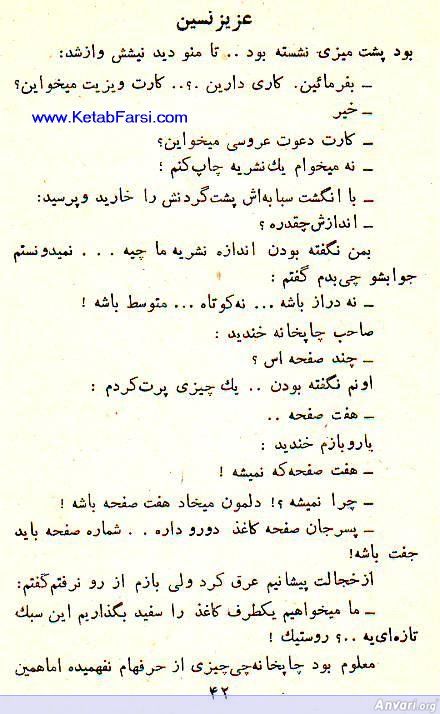 عزیزنسین
بود پشت میزی نشسته بود .. تا منو دید نیشش وازشد:
ـ بفرمائین. کاری دارین .؟.. کارت ویزیت میخواین؟
ـ خیر
www.KetabFarsi.com
ـ کارت دعوت عروسی میخواین؟
ـ نه میخوام یك نشریه چاپ کنم ؛
ـ با انگشت سبابه‌اش پشت گردنش را خارید وپرسید:
ـ اندازش چقدره ؟
بمن نگفته بودن اندازه نشریه ما چیه . . . نمیدونستم
جوابشو چی بدم گفتم :
ـ نه دراز باشه ... نه کوتاه ... متوسط باشه !
صاحب چاپخانه خندید :
ـ چند صفحه اس ؟
اونم نگفته بودن .. یك چیزی پرت کردم :
ـ هفت صفحه ..
یاروبازم خندید :
ـ هفت صفحه که نمیشه !
ـ چرا نمیشه ؟! دلمون میخاد هفت صفحه باشه !
ـ پسرجان صفحه کاغذ دورو داره . . شماره صفحه باید
جفت باشه!
ازخجالت پیشانیم عرق کرد ولی بازم از رو نرفتم گفتم:
ـ ما میخواهیم یکطرف کاغذ را سفید بگذاریم این سبك
تازه‌ای‌یه ..؟ روستیك !
معلوم بود چاپخانه‌چی چیزی از حرفهام نفهمیده اماهمین
۴۲
Anvari.org